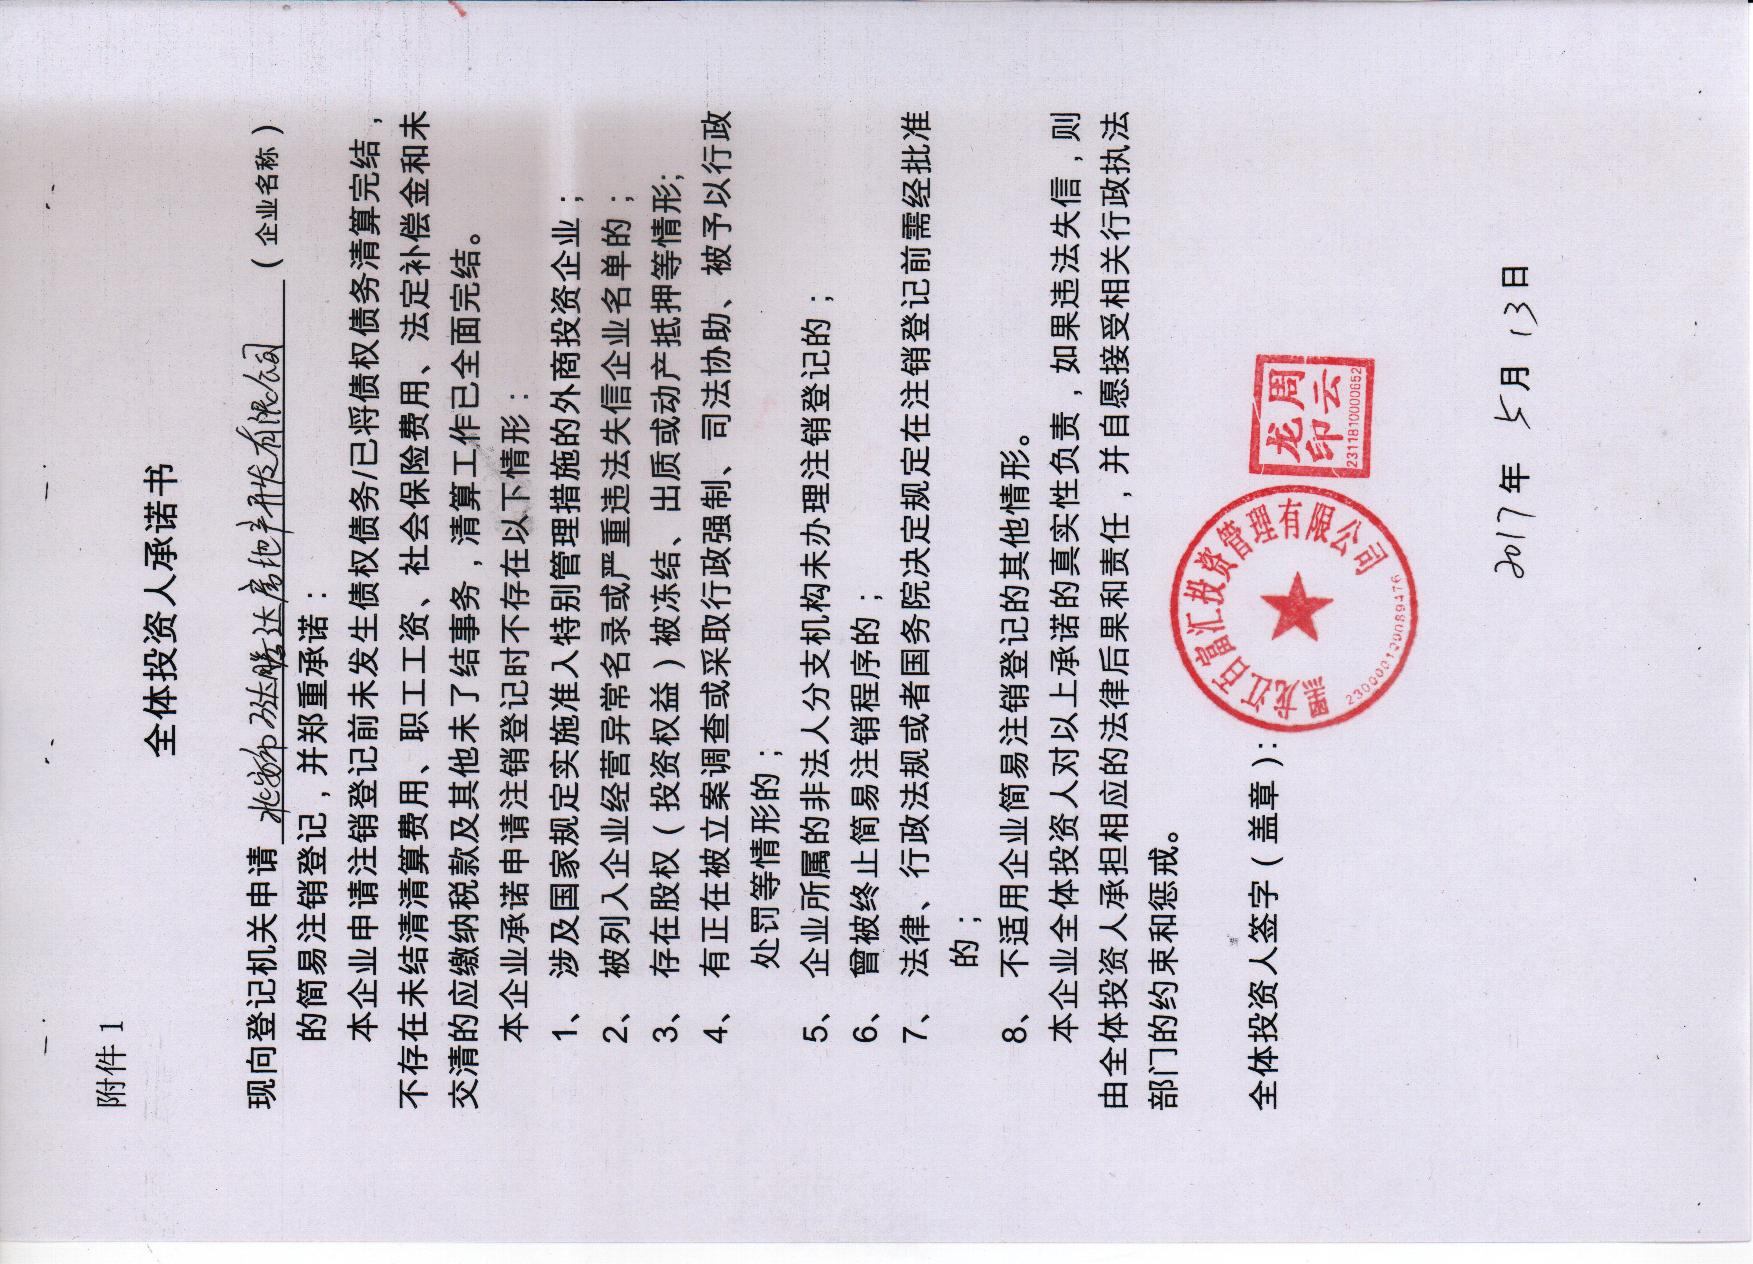 附件 1
全体投资人承诺书
现向登记机关申请 北安市 达腾达房地产开发有限公司 (企业名称)
的简易注销登记,并郑重承诺:
本企业申请注销登记前未发生债权债务/已将债权债务清算完结,
不存在未结清清算费用、职工工资、社会保险费用、法定补偿金和未
交清的应缴纳税款及其他未了结事务,清算工作已全面完结。
本企业承诺申请注销登记时不存在以下情形:
1、 涉及国家规定实施准入特别管理措施的外商投资企业;
2、 被列入企业经营异常名录或严重违法失信企业名单的;
3、 存在股权(投资权益)被冻结、出质或动产抵押等情形;
4、 有正在被立案调查或采取行政强制、司法协助、被予以行政
处罚等情形的;
5、 企业所属的非法人分支机构未办理注销登记的;
6、 曾被终止简易注销程序的;
7、 法律、行政法规或者国务院决定规定在注销登记前需经批准
的;
8、 不适用企业简易注销登记的其他情形。
本企业全体投资人对以上承诺的真实性负责,如果违法失信,则
由全体投资人承担相应的法律后果和责任,并自愿接受相关行政执法
部门的约束和惩戒。
全体投资人签字(盖章):
黑龙江百富汇投资管理有限公司
2300001090089476
周云
龙印
2311810000652
2017年 5月 13日